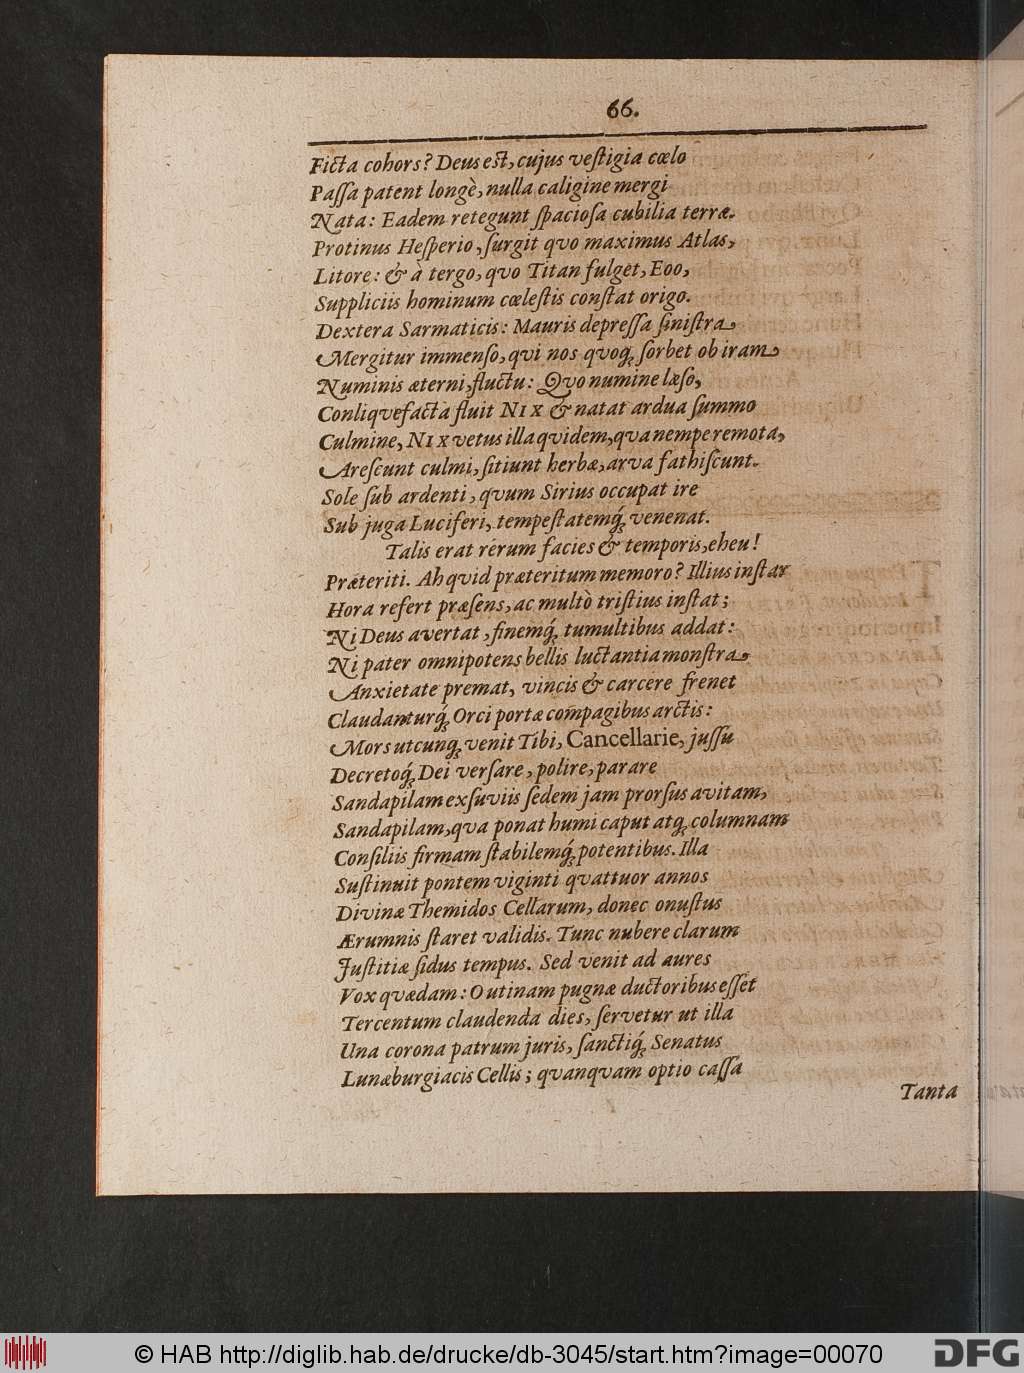 66.
Ficta cohors? Deus est, cujus veſtigia cœlo
Paſſa patent longè, nulla caligine mergi
Nata: Eadem retegunt ſpacioſa cubilia terræ.
Protinus Heſperio, ſurgit quo maximus Atlas,
Litore: & à tergo, quo Titan fulget, Eoo,
Suppliciis hominum cœleſtis conſtat origo.
Dextera Sarmaticis: Mauris depreſſa ſiniſtra
Mergitur immenſo, qui nos quoq́; ſorbet ob iram
Numinis æterni, fluctu: Quo numine læſo,
Conliquefacta fluit NIX & natat ardua ſummo
Culmine, NIX vetus illa quidem, qua nempe remota,
Areſcunt culmi, ſitiunt herbæ, arva fathiſcunt.
Sole ſub ardenti, quum Sirius occupat ire
Sub juga Luciferi, tempeſtatemq́; venenat.
Talis erat rerum facies & temporis, eheu!
Præteriti. Ah quid præteritum memoro? Illius inſtar
Hora refert præſens, ac multò triſtius inſtat;
Ni Deus avertat, finemq́; tumultibus addat:
Ni pater omnipotens bellis luctantia monſtra
Anxietate premat, vincis & carcere frenet
Claudanturq́; Orci portæ compagibus arctis:
Mors utcunq; venit Tibi, Cancellarie, juſſu
Decretoq́; Dei verſare, polire, parare
Sandapilam exſuviis ſedem jam prorſus avitam,
Sandapilam, qua ponat humi caput atq; columnam
Conſiliis firmam ſtabilemq́; potentibus. Illa
Suſtinuit pontem viginti quattuor annos
Divinæ Themidos Cellarum, donec onuſtus
Ærumnis ſtaret validis. Tunc nubere clarum
Juſtitiæ ſidus tempus. Sed venit ad aures
Vox quædam: O utinam pugnæ ductoribus eſſet
Tercentum claudenda dies, ſervetur ut illa
Una corona patrum juris, ſanctiq́; Senatus
Lunæburgiacis Cellis; quanquam optio caſſa
Tanta
© HAB http://diglib.hab.de/drucke/db-3045/start.htm?image=00070
DFG